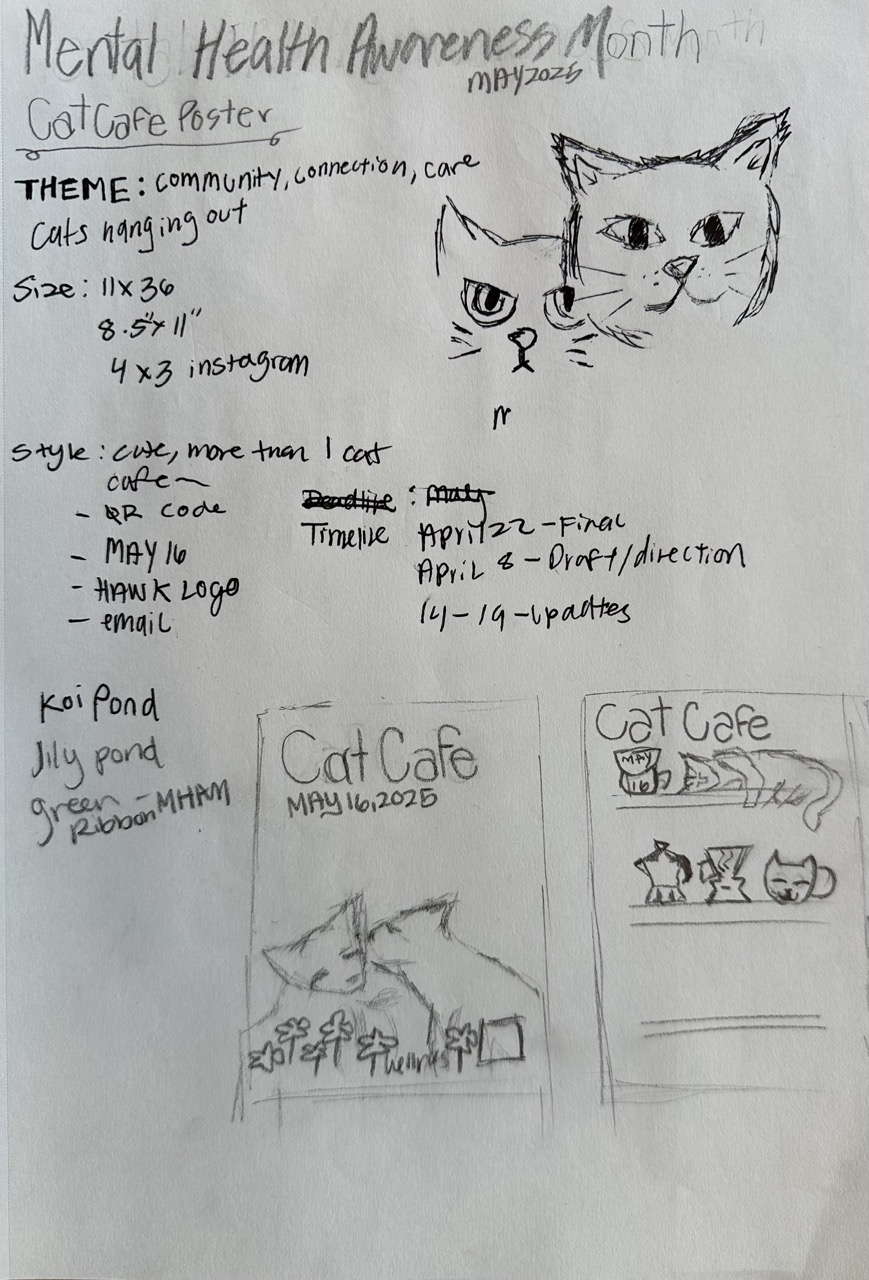 Mental Health Awareness Month
MAY 2025
Cat Cafe Poster
THEME: community, connection, care
Cats hanging out
Size: 11x36
8.5"x11"
4x3 instagram
Style: cute, more than 1 cat
cafe
- QR code
- MAY 16
- HAWK Logo
- email
Deadline: May
Timeline April 22 - Final
April 8 - Draft/direction
14-19-updates
Koi Pond
lily pond
green - MHAM
Ribbon
Cat Cafe
MAY 16, 2025
Cat Cafe
MAY
16